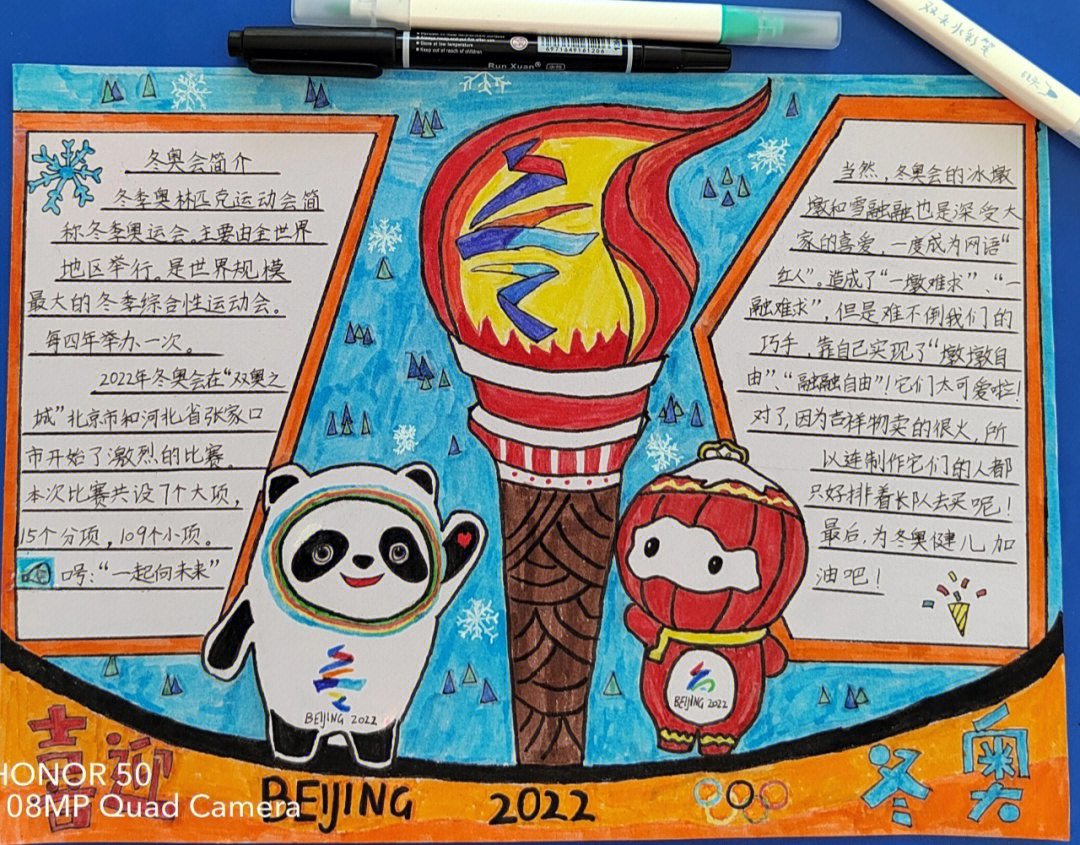 双头水彩笔
Run Xuan®
6971649161206
冬奥会简介
冬季奥林匹克运动会简
称冬季奥运会。主要由全世界
地区举行。是世界规模
最大的冬季综合性运动会。
每四年举办一次。
2022年冬奥会在“双奥之
城”北京市和河北省张家口
市开始了激烈的比赛。
本次比赛共设7个大项，
15个分项，109个小项。
口号：“一起向未来”
当然，冬奥会的冰墩
墩和雪融融也是深受大
家的喜爱，一度成为网语“
红人”。造成了“一墩难求”、“一
融难求”，但是难不倒我们的
巧手，靠自己实现了“墩墩自
由”、“融融自由”！它们太可爱啦！
对了，因为吉祥物卖的很火，所
以连制作它们的人都
只好排着长队去买呢！
最后，为冬奥健儿加
油吧！
BEIJING 2022
BEIJING 2022
喜迎
冬奥
BEIJING 2022
HONOR 50
08MP Quad Camera